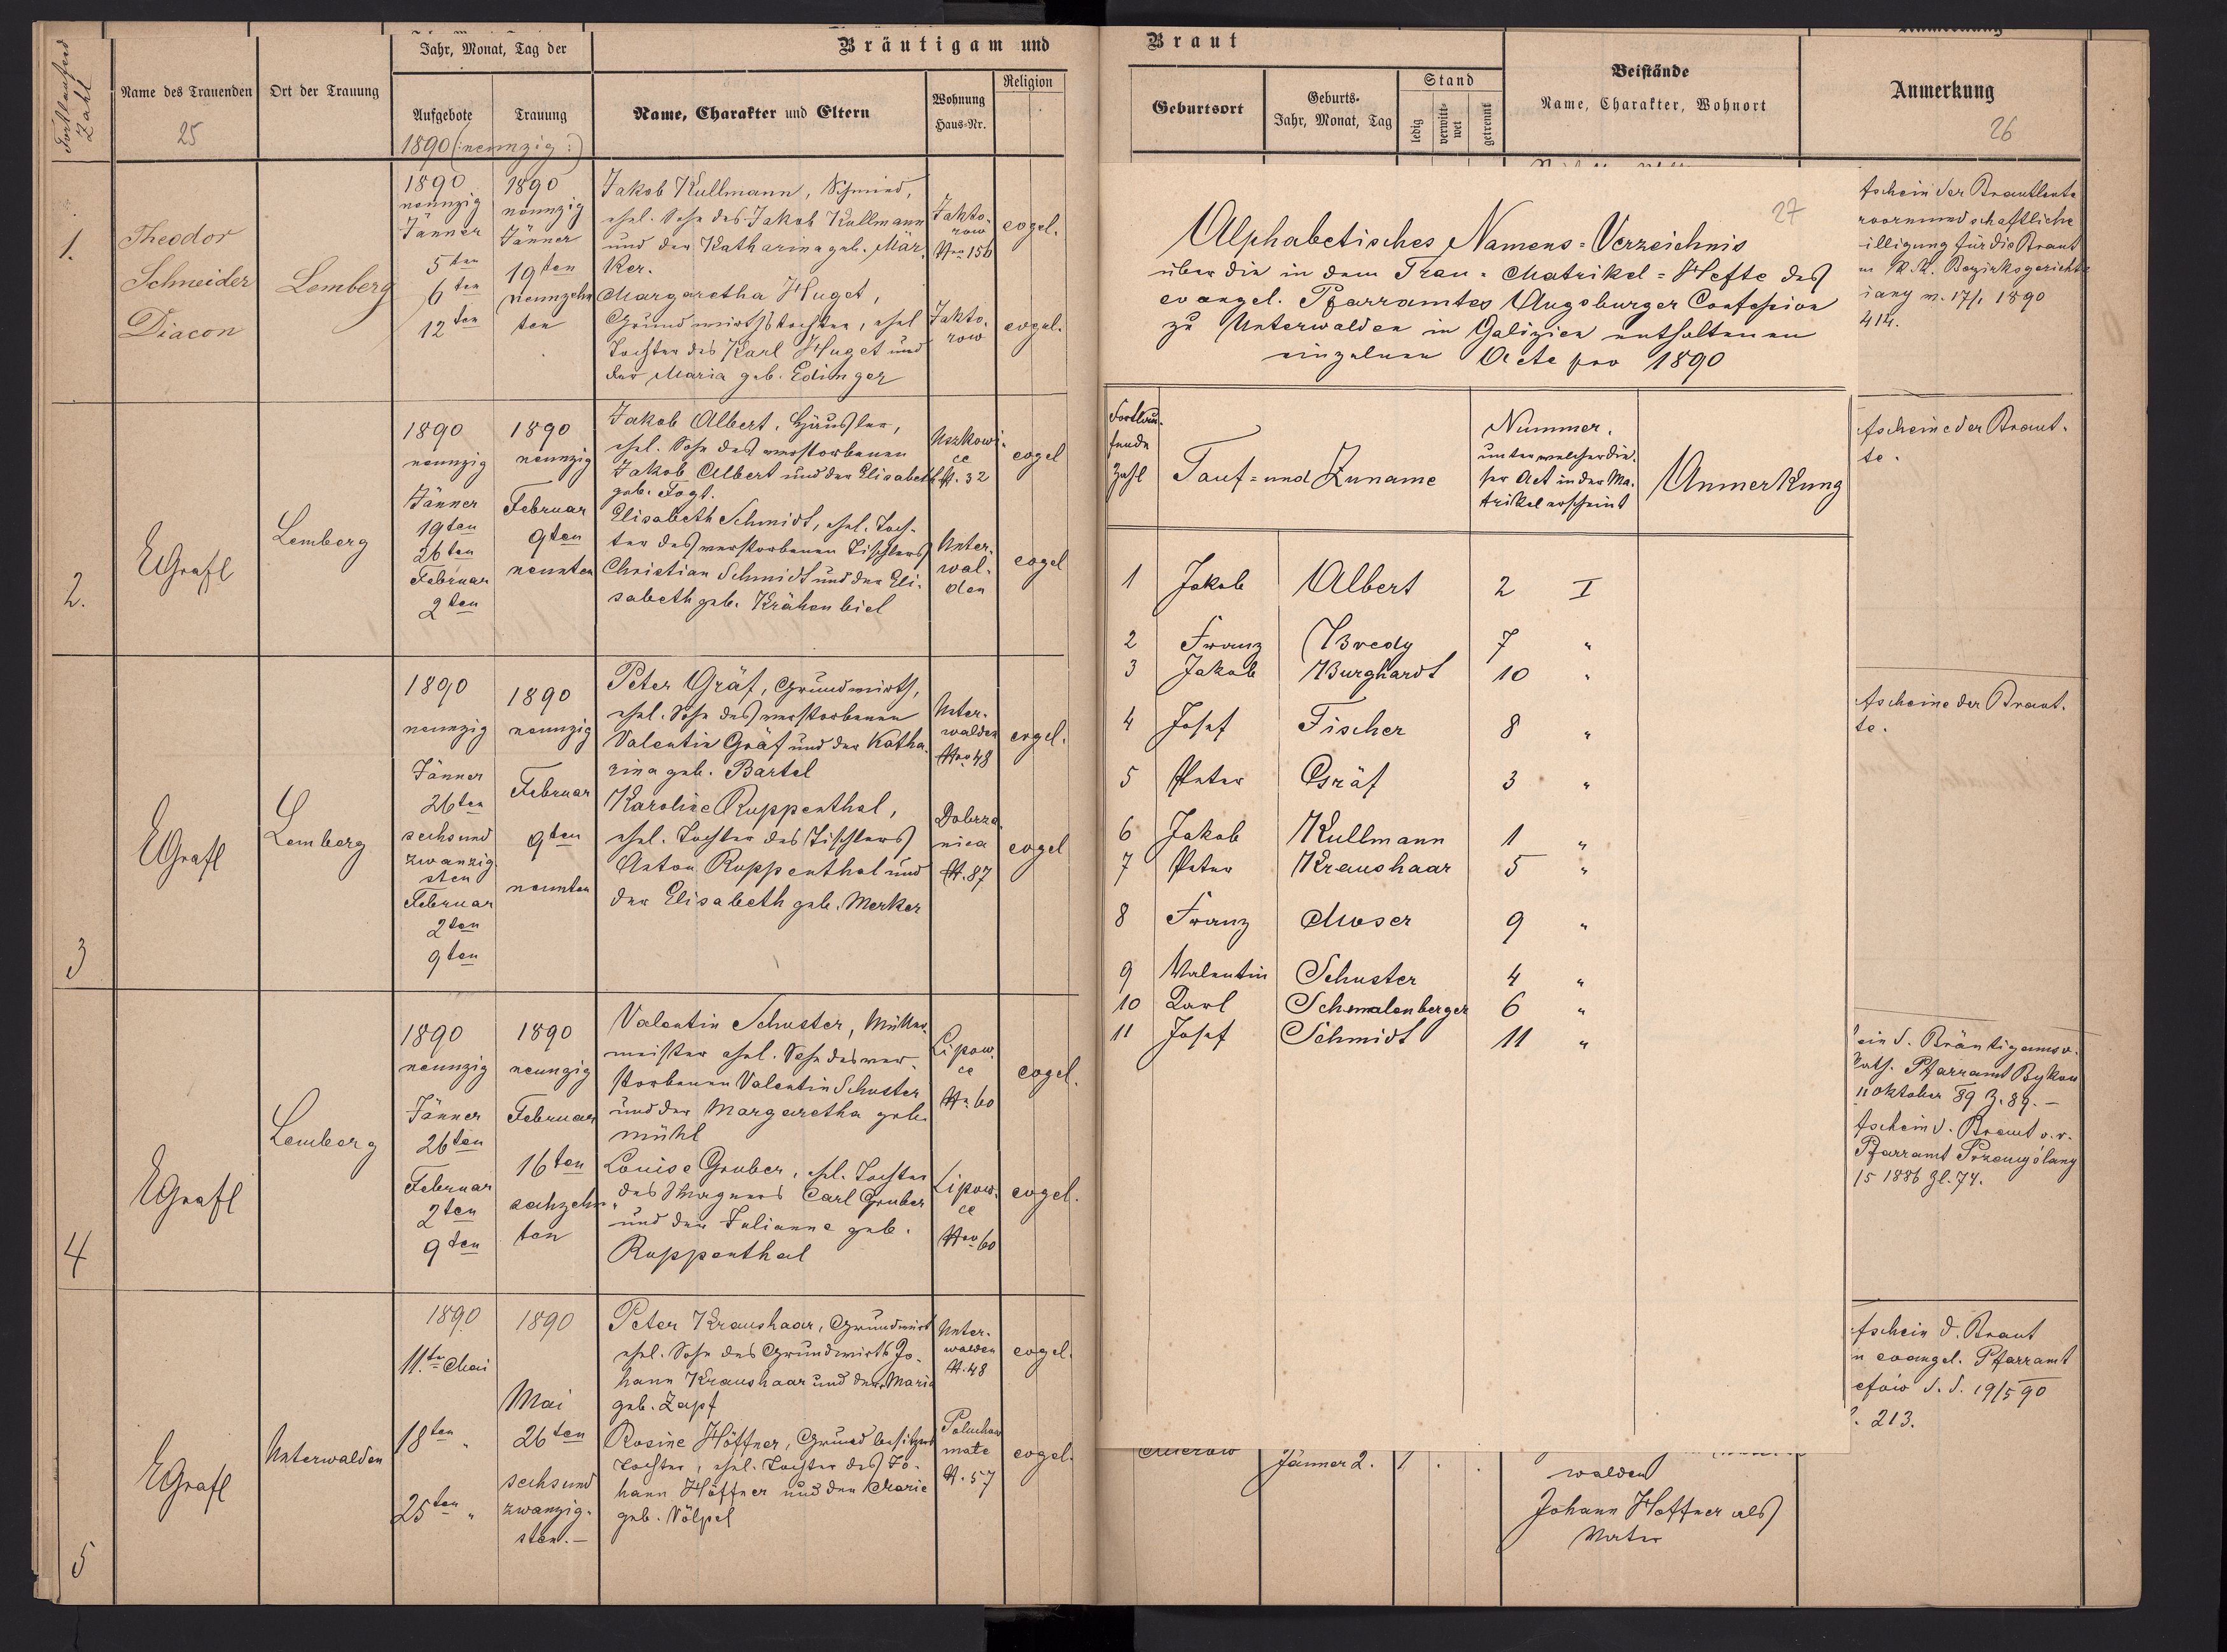 Fortlaufend
Zahl
Name des Trauenden
25
Ort der Trauung
Jahr, Monat, Tag der
Aufgebote
Trauung
1890 (: neunzig :)
Bräutigam und
Name, Charakter und Eltern
Wohnung
Haus-Nr.
Religion
1.
Theodor
Schneider
Diacon
Lemberg
1890
neunzig
Jänner
5ten
6ten
12ten
1890
neunzig
Jänner
19ten
neunzehn
ten
Jakob Kullmann, Schmied,
ehel. Sohn des Jakob Kullmann
und der Katharina geb. Mär-
ker.
Margaretha Huget,
Grundwirthstochter, ehel
Tochter des Karl Huget und
der Maria geb. Edinger
Jakto-
row
Nro 156
evgel.
Jakto-
row
evgel.
2.
EGrafl
Lemberg
1890
neunzig
Jänner
19ten
26ten
Februar
2ten
1890
neunzig
Februar
9ten
neunten
Jakob Albert, Häusler,
ehel. Sohn des verstorbenen
Jakob Albert und der Elisabeth
geb. Fogt.
Elisabeth Schmidt, ehel. Toch-
ter des verstorbenen Tischlers
Christian Schmidt und der Eli-
sabeth geb. Krähenbiel
Uszkowi-
ce
N. 32
evgel
Unter-
wal-
den
evgel
3
EGrafl
Lemberg
1890
neunzig
Jänner
26ten
sechsund
zwanzig
sten
Februar
2ten
9ten
1890
neunzig
Februar
9ten
neunten
Peter Gräf, Grundwirth,
ehel. Sohn des verstorbenen
Valentin Gräf und der Katha-
rina geb. Bartel
Karoline Ruppenthal,
ehel. Tochter des Tischlers
Anton Ruppenthal und
der Elisabeth geb. Merker
Unter-
walden
Nro 48
evgel.
Dobrza-
nica
N. 87
evgel
4
EGrafl
Lemberg
1890
neunzig
Jänner
26ten
Februar
2ten
9ten
1890
neunzig
Februar
16ten
sechzehn-
ten
Valentin Schuster, Müller-
meister ehel. Sohn des ver-
storbenen Valentin Schuster
und der Margaretha geb.
Mühl
Louise Gruber, ehl. Tochter
des Wagners Carl Gruber
und der Julianne geb.
Ruppenthal
Lipow-
ce
Nr. 60
evgel.
Lipow-
ce
Nro 60
evgel.
5
EGrafl
Unterwalden
1890
11.ten Mai
18ten "
25ten "
1890
Mai
26ten
sechsund
zwanzig-
sten.-
Peter Kraushaar, Grundwirt
ehel. Sohn des Grundwirths Jo-
hann Kraushaar und der Maria
geb. Zapf
Rosine Höffner, Grundbesitzers
Tochter, ehel. Tochter des Jo-
hann Höffner und der Marie
geb. Völpel
Unter-
walden
N. 48
evgel.
Poluchow
mate
N. 57
evgel.
Braut
Geburtsort
Geburts-
Jahr, Monat, Tag
Stand
ledig
verwit-
wet
getrennt
Beistände
Name, Charakter, Wohnort
Anmerkung
26
27
Alphabetisches Namens-Verzeichnis
über die in dem Trau-Matrikel-Hefte des
evangel. Pfarramtes Augsburger Confession
zu Unterwalden in Galizien enthaltenen
einzelnen Acte pro 1890
Fortlau-
fende
Zahl
Tauf- und Zuname
Nummer,
unter welcher die-
ser Act in der Ma-
trikel erscheint
Anmerkung
1 Jakob Albert 2 I
2 Franz Bredy 7 "
3 Jakob Burghardt 10 "
4 Josef Fischer 8 "
5 Peter Gräf 3 "
6 Jakob Kullmann 1 "
7 Peter Kraushaar 5 "
8 Franz Moser 9 "
9 Valentin Schuster 4 "
10 Karl Schmalenberger 6 "
11 Josef Schmidt 11 "
fschein der Brautleute
vormundschaftliche
illigung für die Braut
m K.K. Bezirksgerichte
iany v. 17/1 1890
414.
fscheine der Braut-
te.
fscheine der Braut-
te.
ein d. Bräutigams v.
kath. Pfarramt Bykow
11 Oktober 89 Z. 89. -
fschein d. Braut v. r.
Pfarramt Przemyślany
15 1886 Zl. 74.
fschein d. Braut
n evangel. Pfarramt
efów d. d. 19/5 90
213.
Jänner 2.
1
.
.
walden
Johann Höffner als
Vater